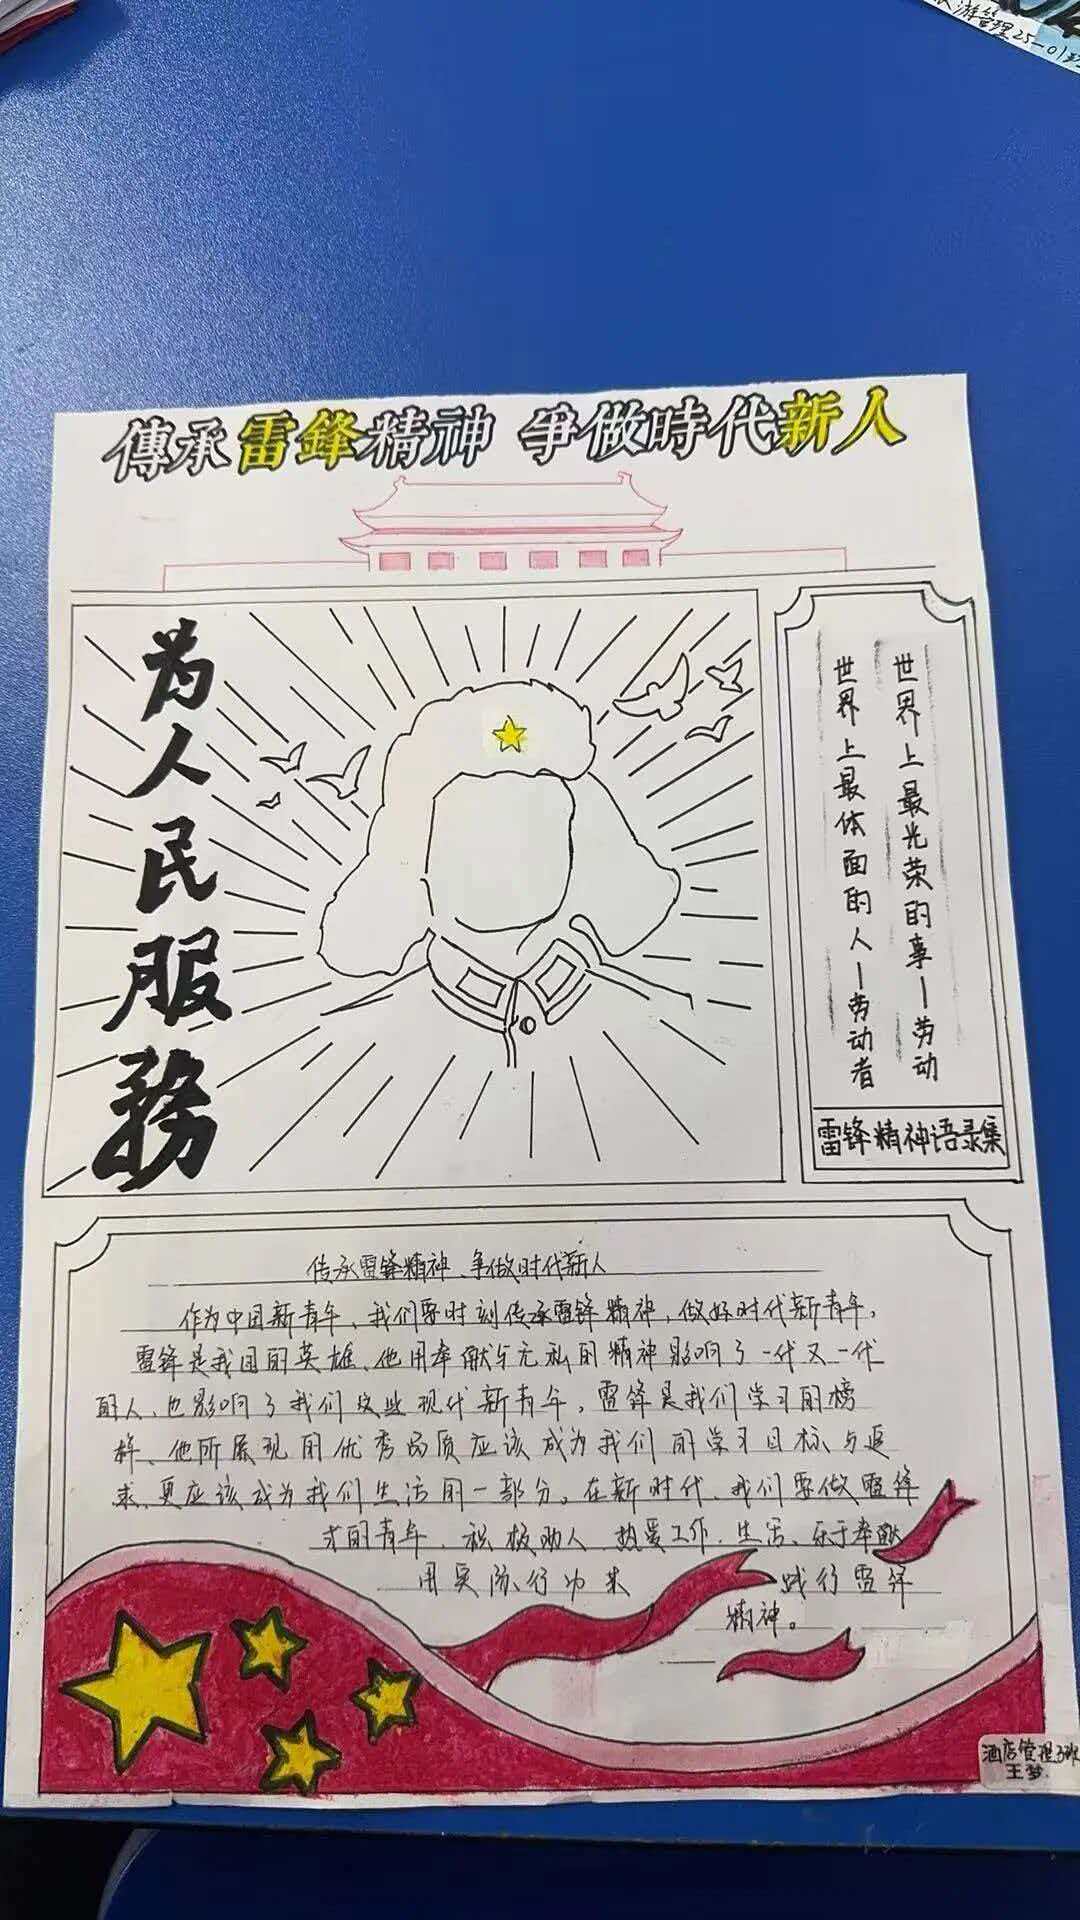 游管理25-01班
傳承雷鋒精神 爭做時代新人
为人民服務
世界上最光荣的事—劳动
世界上最体面的人—劳动者
雷锋精神语录集
传承雷锋精神、争做时代新人
作为中国新青年、我们要时刻传承雷锋精神,做好时代新青年,
雷锋是我国的英雄、他用奉献与无私的精神影响了一代又一代
的人、也影响了我们这些现代新青年,雷锋是我们学习的榜
样、他所展现的优秀品质应该成为我们的学习目标与追
求、更应该成为我们生活的一部分。在新时代、我们要做雷锋
才的青年、积极助人 热爱工作、生活、乐于奉献
用实际行动来 践行雷锋
精神。
酒店管理3班
王梦